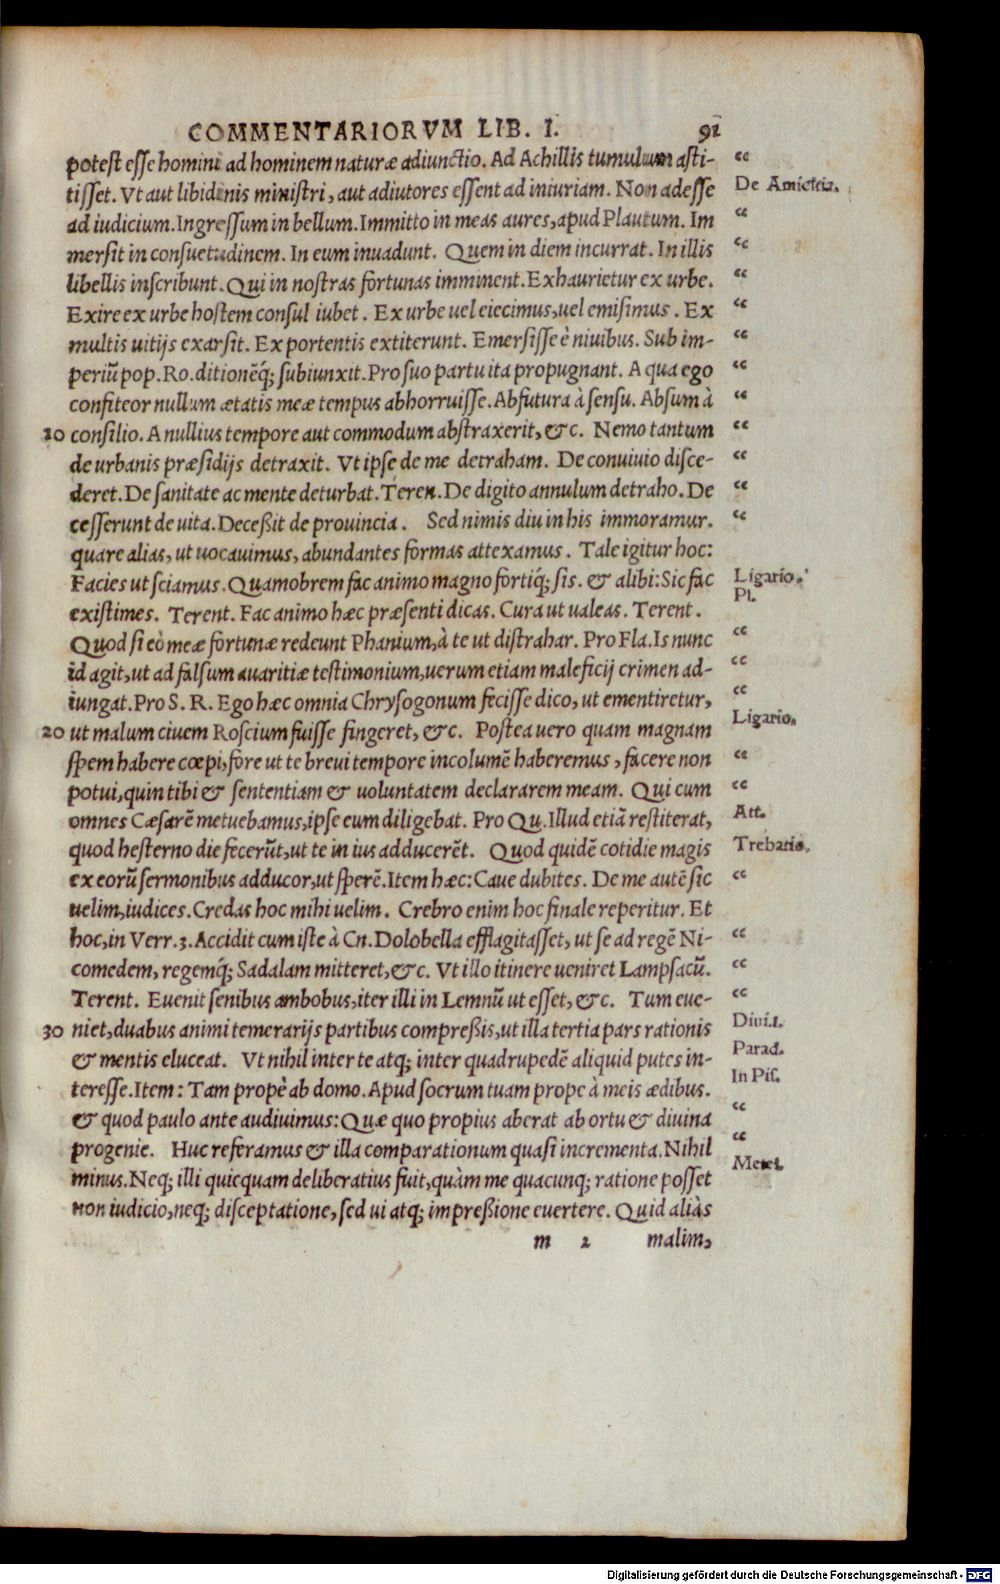 COMMENTARIORVM LIB. I. 91
potest esse homini ad hominem naturæ adiunctio. Ad Achillis tumulum asti- “
tisset. Vt aut libidinis ministri, aut adiutores essent ad iniuriam. Non adesse De Amicitia.
ad iudicium. Ingressum in bellum. Immitto in meas aures, apud Plautum. Im “
mersit in consuetudinem. In eum inuadunt. Quem in diem incurrat. In illis “
libellis inscribunt. Qui in nostras fortunas imminent. Exhaurietur ex urbe. “
Exire ex urbe hostem consul iubet. Ex urbe uel eiecimus, uel emisimus. Ex “
multis uitijs exarsit. Ex portentis extiterunt. Emersisse è niuibus. Sub im- “
periũ pop. Ro. ditionẽq́; subiunxit. Pro suo partu ita propugnant. A qua ego “
confiteor nullum ætatis meæ tempus abhorruisse. Absutura à sensu. Absum à “
10 consilio. A nullius tempore aut commodum abstraxerit, &c. Nemo tantum “
de urbanis præsidijs detraxit. Vt ipse de me detraham. De conuiuio disce- “
deret. De sanitate ac mente deturbat. Teren. De digito annulum detraho. De “
cesserunt de uita. Deceßit de prouincia. Sed nimis diu in his immoramur. “
quare alias, ut uocauimus, abundantes formas attexamus. Tale igitur hoc:
Facies ut sciamus. Quamobrem fac animo magno fortiq́; sis. & alibi: Sic fac Ligario.
existimes. Terent. Fac animo hæc præsenti dicas. Cura ut ualeas. Terent. Pl.
Quod si eò meæ fortunæ redeunt Phanium, à te ut distrahar. Pro Fla. Is nunc “
id agit, ut ad falsum auaritiæ testimonium, uerum etiam maleficij crimen ad- “
iungat. Pro S. R. Ego hæc omnia Chrysogonum fecisse dico, ut ementiretur, “
20 ut malum ciuem Roscium fuisse fingeret, &c. Postea uero quam magnam Ligario.
spem habere cœpi, fore ut te breui tempore incolumẽ haberemus, facere non “
potui, quin tibi & sententiam & uoluntatem declararem meam. Qui cum “
omnes Cæsarẽ metuebamus, ipse eum diligebat. Pro Qu. Illud etiã restiterat, Att.
quod hesterno die fecerũt, ut te in ius adducerẽt. Quod quidẽ cotidie magis Trebatio.
ex eorũ sermonibus adducor, ut sperẽ. Item hæc: Caue dubites. De me autẽ sic “
uelim, iudices. Credas hoc mihi uelim. Crebro enim hoc finale reperitur. Et
hoc, in Verr. 3. Accidit cum iste à Cn. Dolobella efflagitasset, ut se ad regẽ Ni- “
comedem, regemq́; Sadalam mitteret, &c. Vt illo itinere ueniret Lampsacũ. “
Terent. Euenit senibus ambobus, iter illi in Lemnũ ut esset, &c. Tum eue- “
30 niet, duabus animi temerarijs partibus compreßis, ut illa tertia pars rationis Diui.1.
& mentis eluceat. Vt nihil inter te atq; inter quadrupedẽ aliquid putes in- Parad.
teresse. Item: Tam propè ab domo. Apud socrum tuam prope à meis ædibus. In Pis.
& quod paulo ante audiuimus: Quæ quo propius aberat ab ortu & diuina “
progenie. Huc referamus & illa comparationum quasi incrementa. Nihil “
minus. Neq; illi quicquam deliberatius fuit, quàm me quacunq; ratione posset
non iudicio, neq; disceptatione, sed ui atq; impreßione euertere. Quid aliàs
m 2 malim,
Digitalisierung gefördert durch die Deutsche Forschungsgemeinschaft - DFG